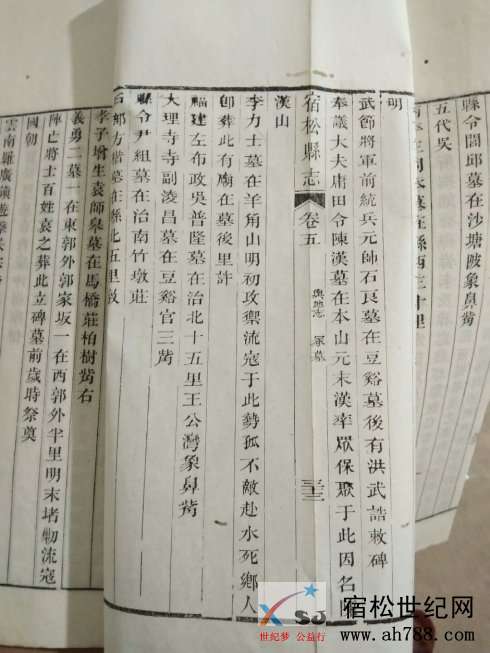 縣令閭邱墓在沙塘陂象鼻嶺
五代吳
墓在縣西三十里
明
武節將軍前統兵元帥石良墓在豆谿墓後有洪武誥敕碑
奉議大夫庸田令陳漢墓在本山元末漢率眾保聚于此因名
宿松縣志
卷五
輿地志
冢墓
三十三
漢山
李力士墓在羊角山明初攻禦流寇于此勢孤不敵赴水死鄉人
卽葬此有廟在墓後里許
福建左布政吳普隆墓在治北十五里王公灣象鼻嶺
大理寺寺副淩昌墓在豆谿官三嶺
縣令尹組墓在治南竹墩莊
方墓在縣北五里
孝子增生袁師臯墓在馬橋莊柏樹嶺右
義勇二墓一在東郭外郭家坂一在西郭外半里明末堵勦流寇
陣亡將士百姓袁之葬此立碑墓前歲時祭奠
國朝
雲南羅
XSJ
世纪梦 公益行
宿松世纪网
www.ah788.com